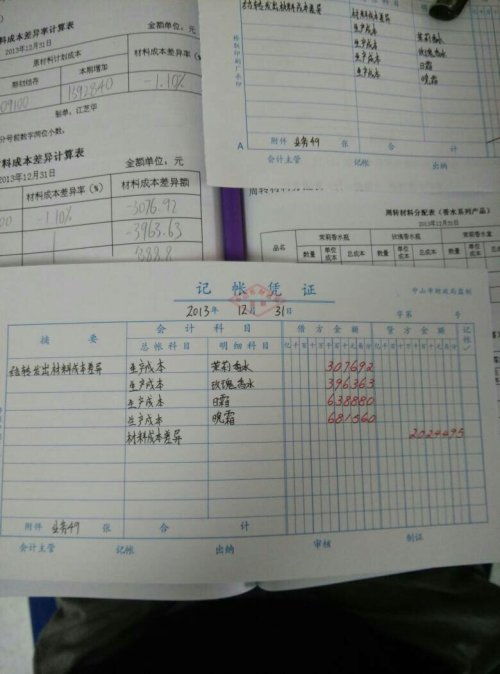 料成本差异率计算表
2013年12月31日
金额单位：元
原材料计划成本
材料成本差异率（%）
期初结存
本期增加
09100
1392840
-1.10%
制单：江芝华
分号前数字两位小数；
料成本差异计算表
2013年12月31日
金额单位：元
材料成本差异率（%）
材料成本差异额
-1.10%
-3076.92
-3963.63
结转发出材料成本差异
材料成本差异
生产成本 茉莉香水
生产成本 玫瑰香水
生产成本 日霜
生产成本 晚霜
附件 业务49 张
合 计
会计主管
记帐
出纳
周转材料分配表（香水系列产品）
2013年12月31日
品名
茉莉香水瓶
玫瑰香水瓶
茉莉香水盒
数量
单位成本
总成本
数量
单位成本
总成本
数量
单位成本
记帐凭证
中山市财政局监制
2013年 12月 31日
字第 号
摘要
会计科目
借方金额
贷方金额
记帐
总帐科目
明细科目
亿千百十万千百十元角分
亿千百十万千百十元角分
结转发出材料成本差异 生产成本 茉莉香水 307692
生产成本 玫瑰香水 396363
生产成本 日霜 638880
生产成本 晚霜 681560
材料成本差异 2024495
附件 业务49 张
合 计
会计主管
记帐
出纳
审核
制证